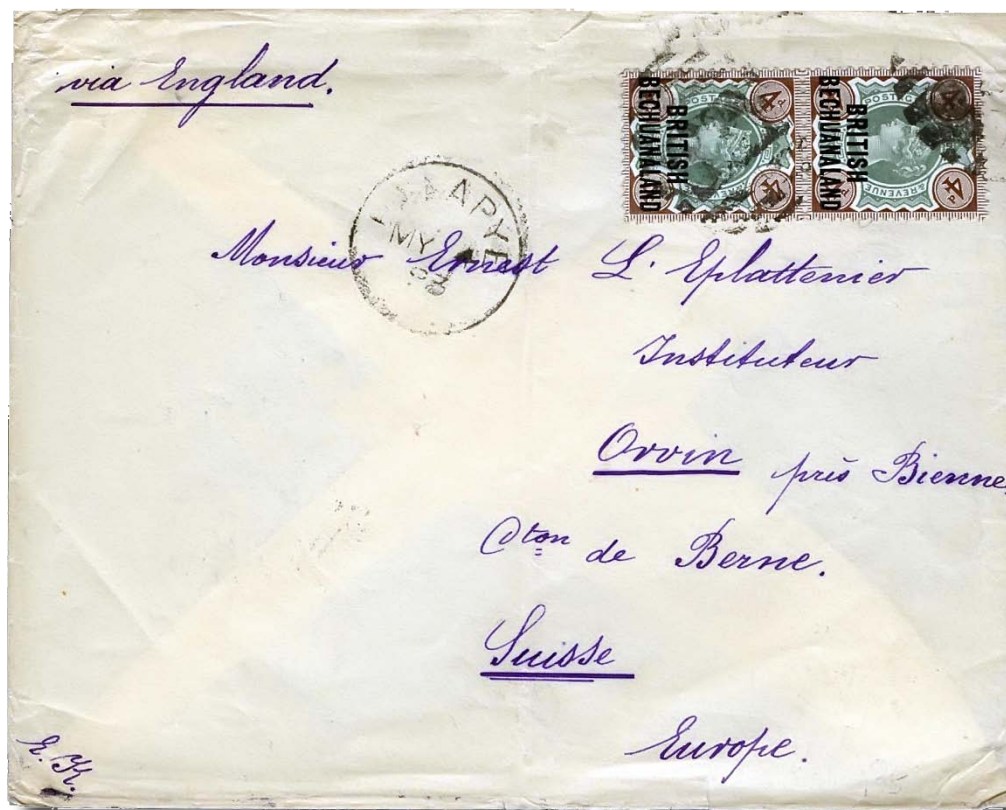 via England.
BRITISH
BECHUANALAND
BRITISH
BECHUANALAND
POSTAGE
& REVENUE
4
4
4
4
MY
Monsieur Ernest L'Eplattenier
Instituteur
Orvin près Bienne
Cton de Berne.
Suisse
Europe.
E. K.